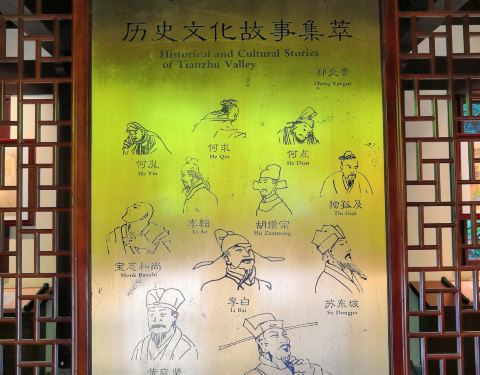 历史文化故事集萃
Historical and Cultural Stories
of Tianzhu Valley
Zheng Yangui
何胤
He Yin
何求
He Qiu
何点
He Dian
独孤及
Du Guji
李翱
Li Ao
胡缵宗
Hu Zuanzong
宝志和尚
Monk Baozhi
李白
Li Bai
苏东坡
Su Dongpo
黄庭坚